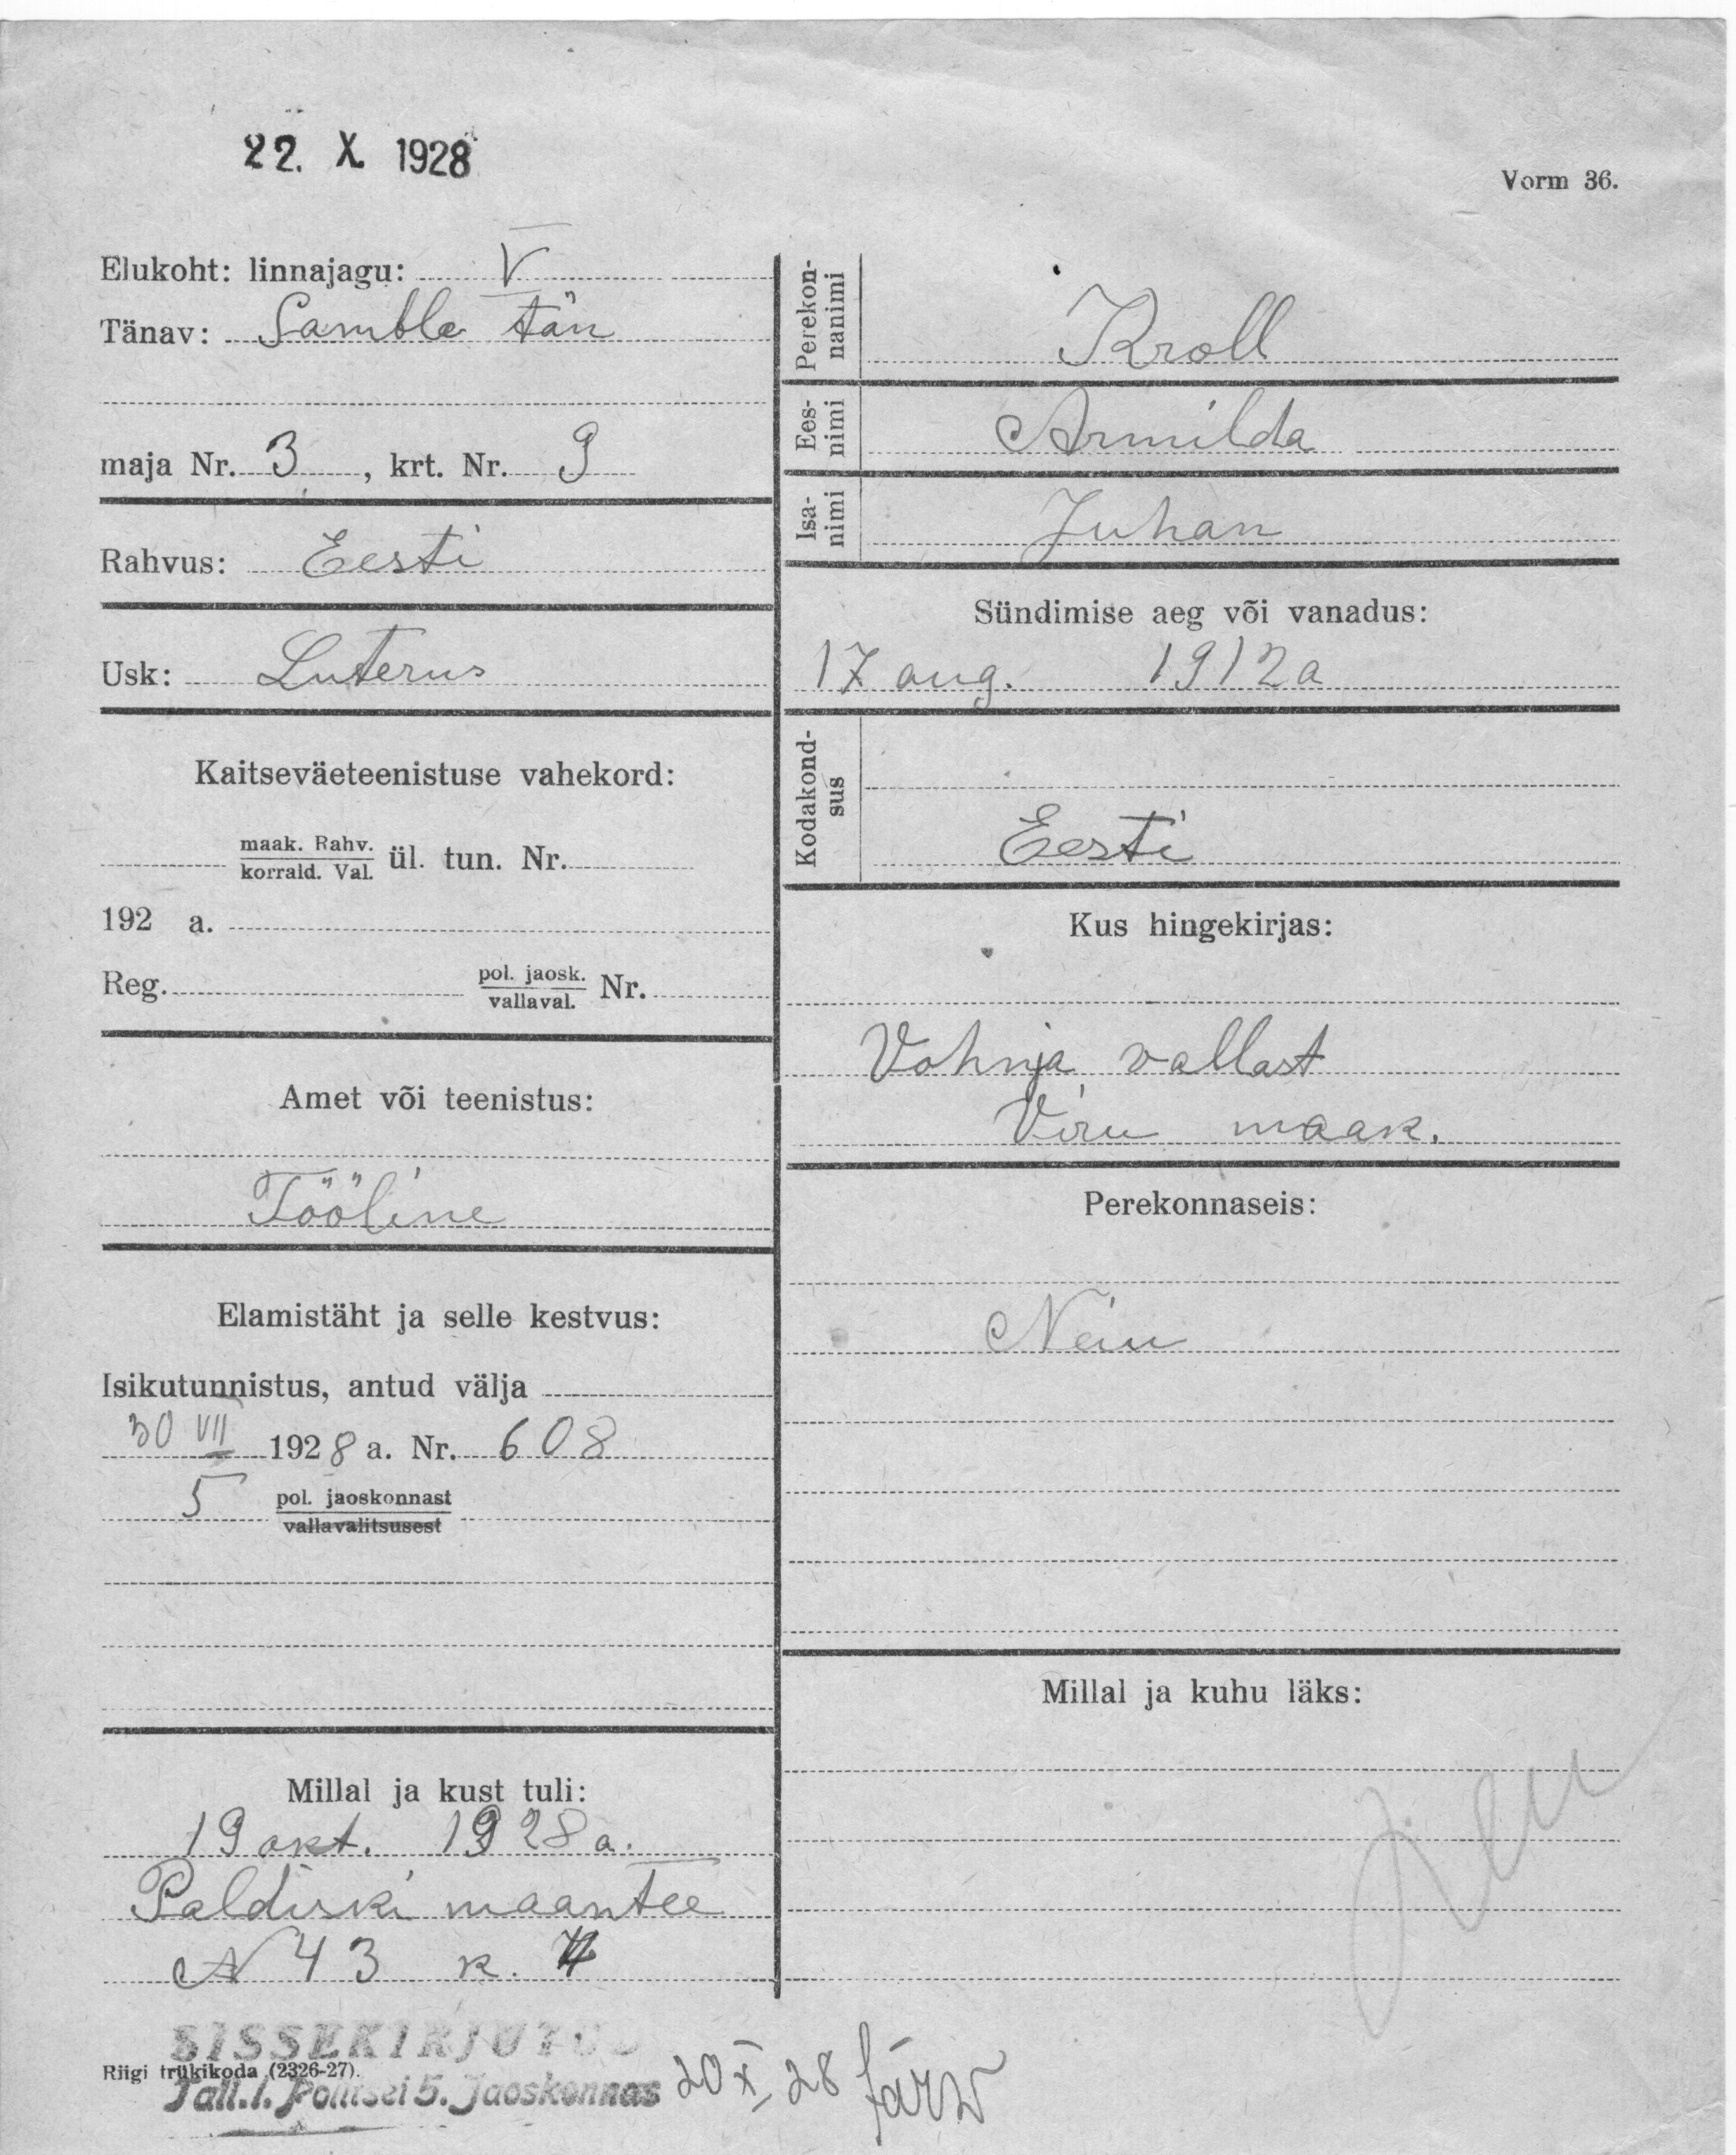 22. X. 1928
Vorm 36.
Elukoht: linnajagu: V
Tänav: Sambla tän
maja Nr. 3, krt. Nr. 9
Rahvus: Eesti
Usk: Luterus
Kaitseväeteenistuse vahekord:
maak. Rahv.
korrald. Val. ül. tun. Nr.
192 a.
Reg. pol. jaosk.
vallaval. Nr.
Amet või teenistus:
Tööline
Elamistäht ja selle kestvus:
Isikutunnistus, antud välja
30 VII 1928 a. Nr. 608
5 pol. jaoskonnast
vallavalitsusest
Millal ja kust tuli:
19 okt. 1928 a.
Paldiski maantee
N 43 k. 4
Perekon-
nanimi
Kroll
Ees-
nimi
Armilda
Isa-
nimi
Juhan
Sündimise aeg või vanadus:
17 aug. 1912 a
Kodakond-
sus
Eesti
Kus hingekirjas:
Vohnja vallast
Viru maak.
Perekonnaseis:
Neiu
Millal ja kuhu läks:
SISSEKIRJUTUD
Riigi trükikoda (2326-27).
Tall.l. Politsei 5. Jaoskonnas 20 X 28